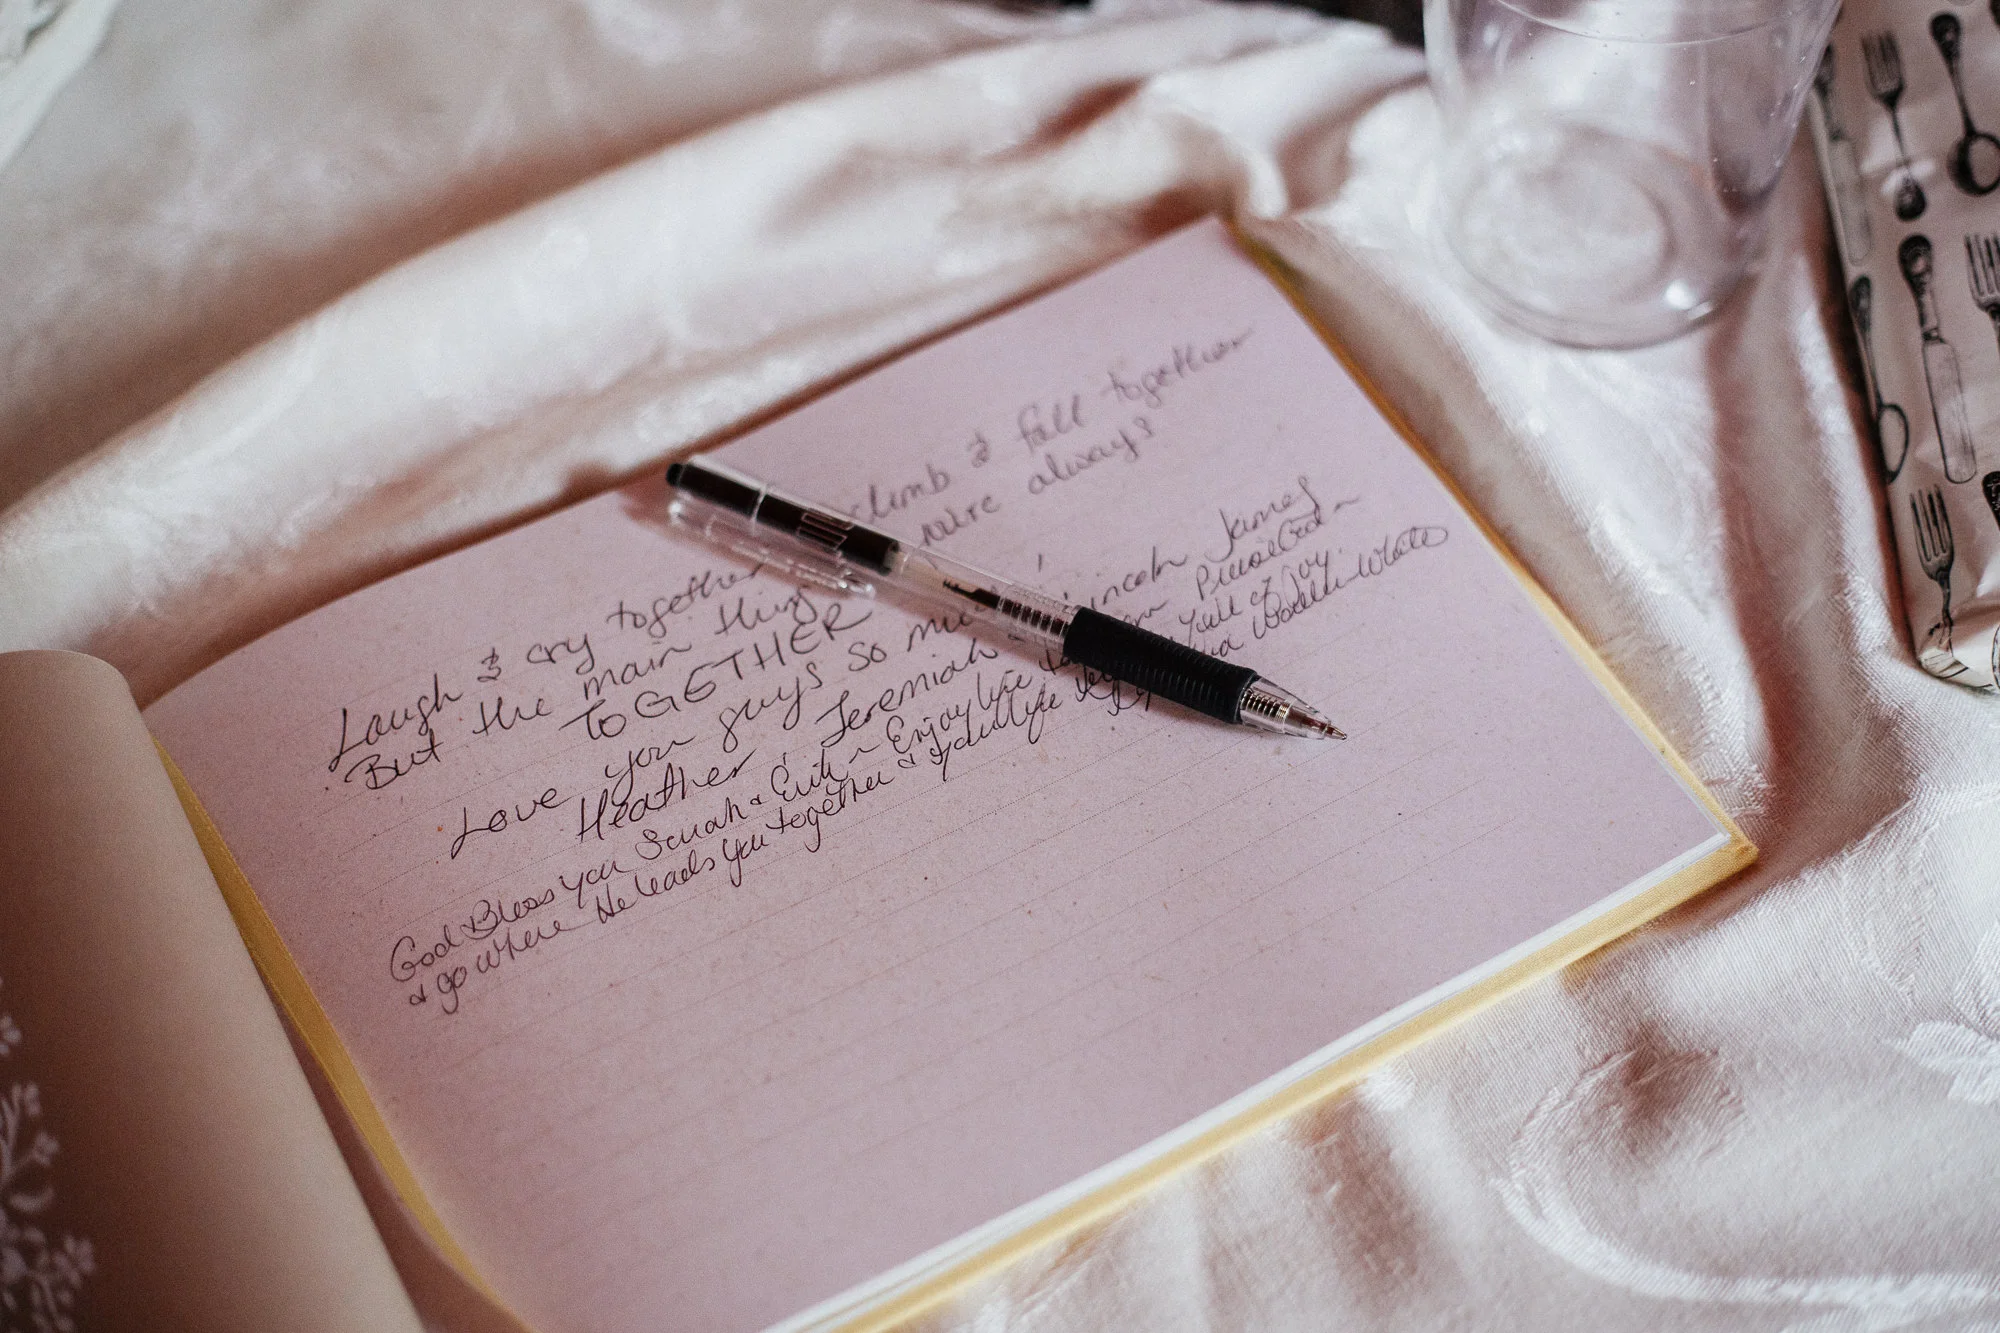 Laugh & cry together climb & fall together
But the main thing you're always
TOGETHER
Love you guys so much!
Heather, Jeremiah Lincoln James
God Bless you Sarah & Erik ~ Enjoy life
& go where He leads you together & your life full of Joy.